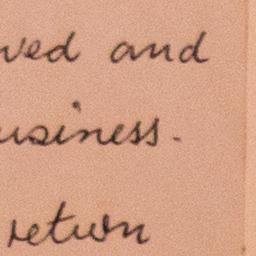 ved and
usiness.
return